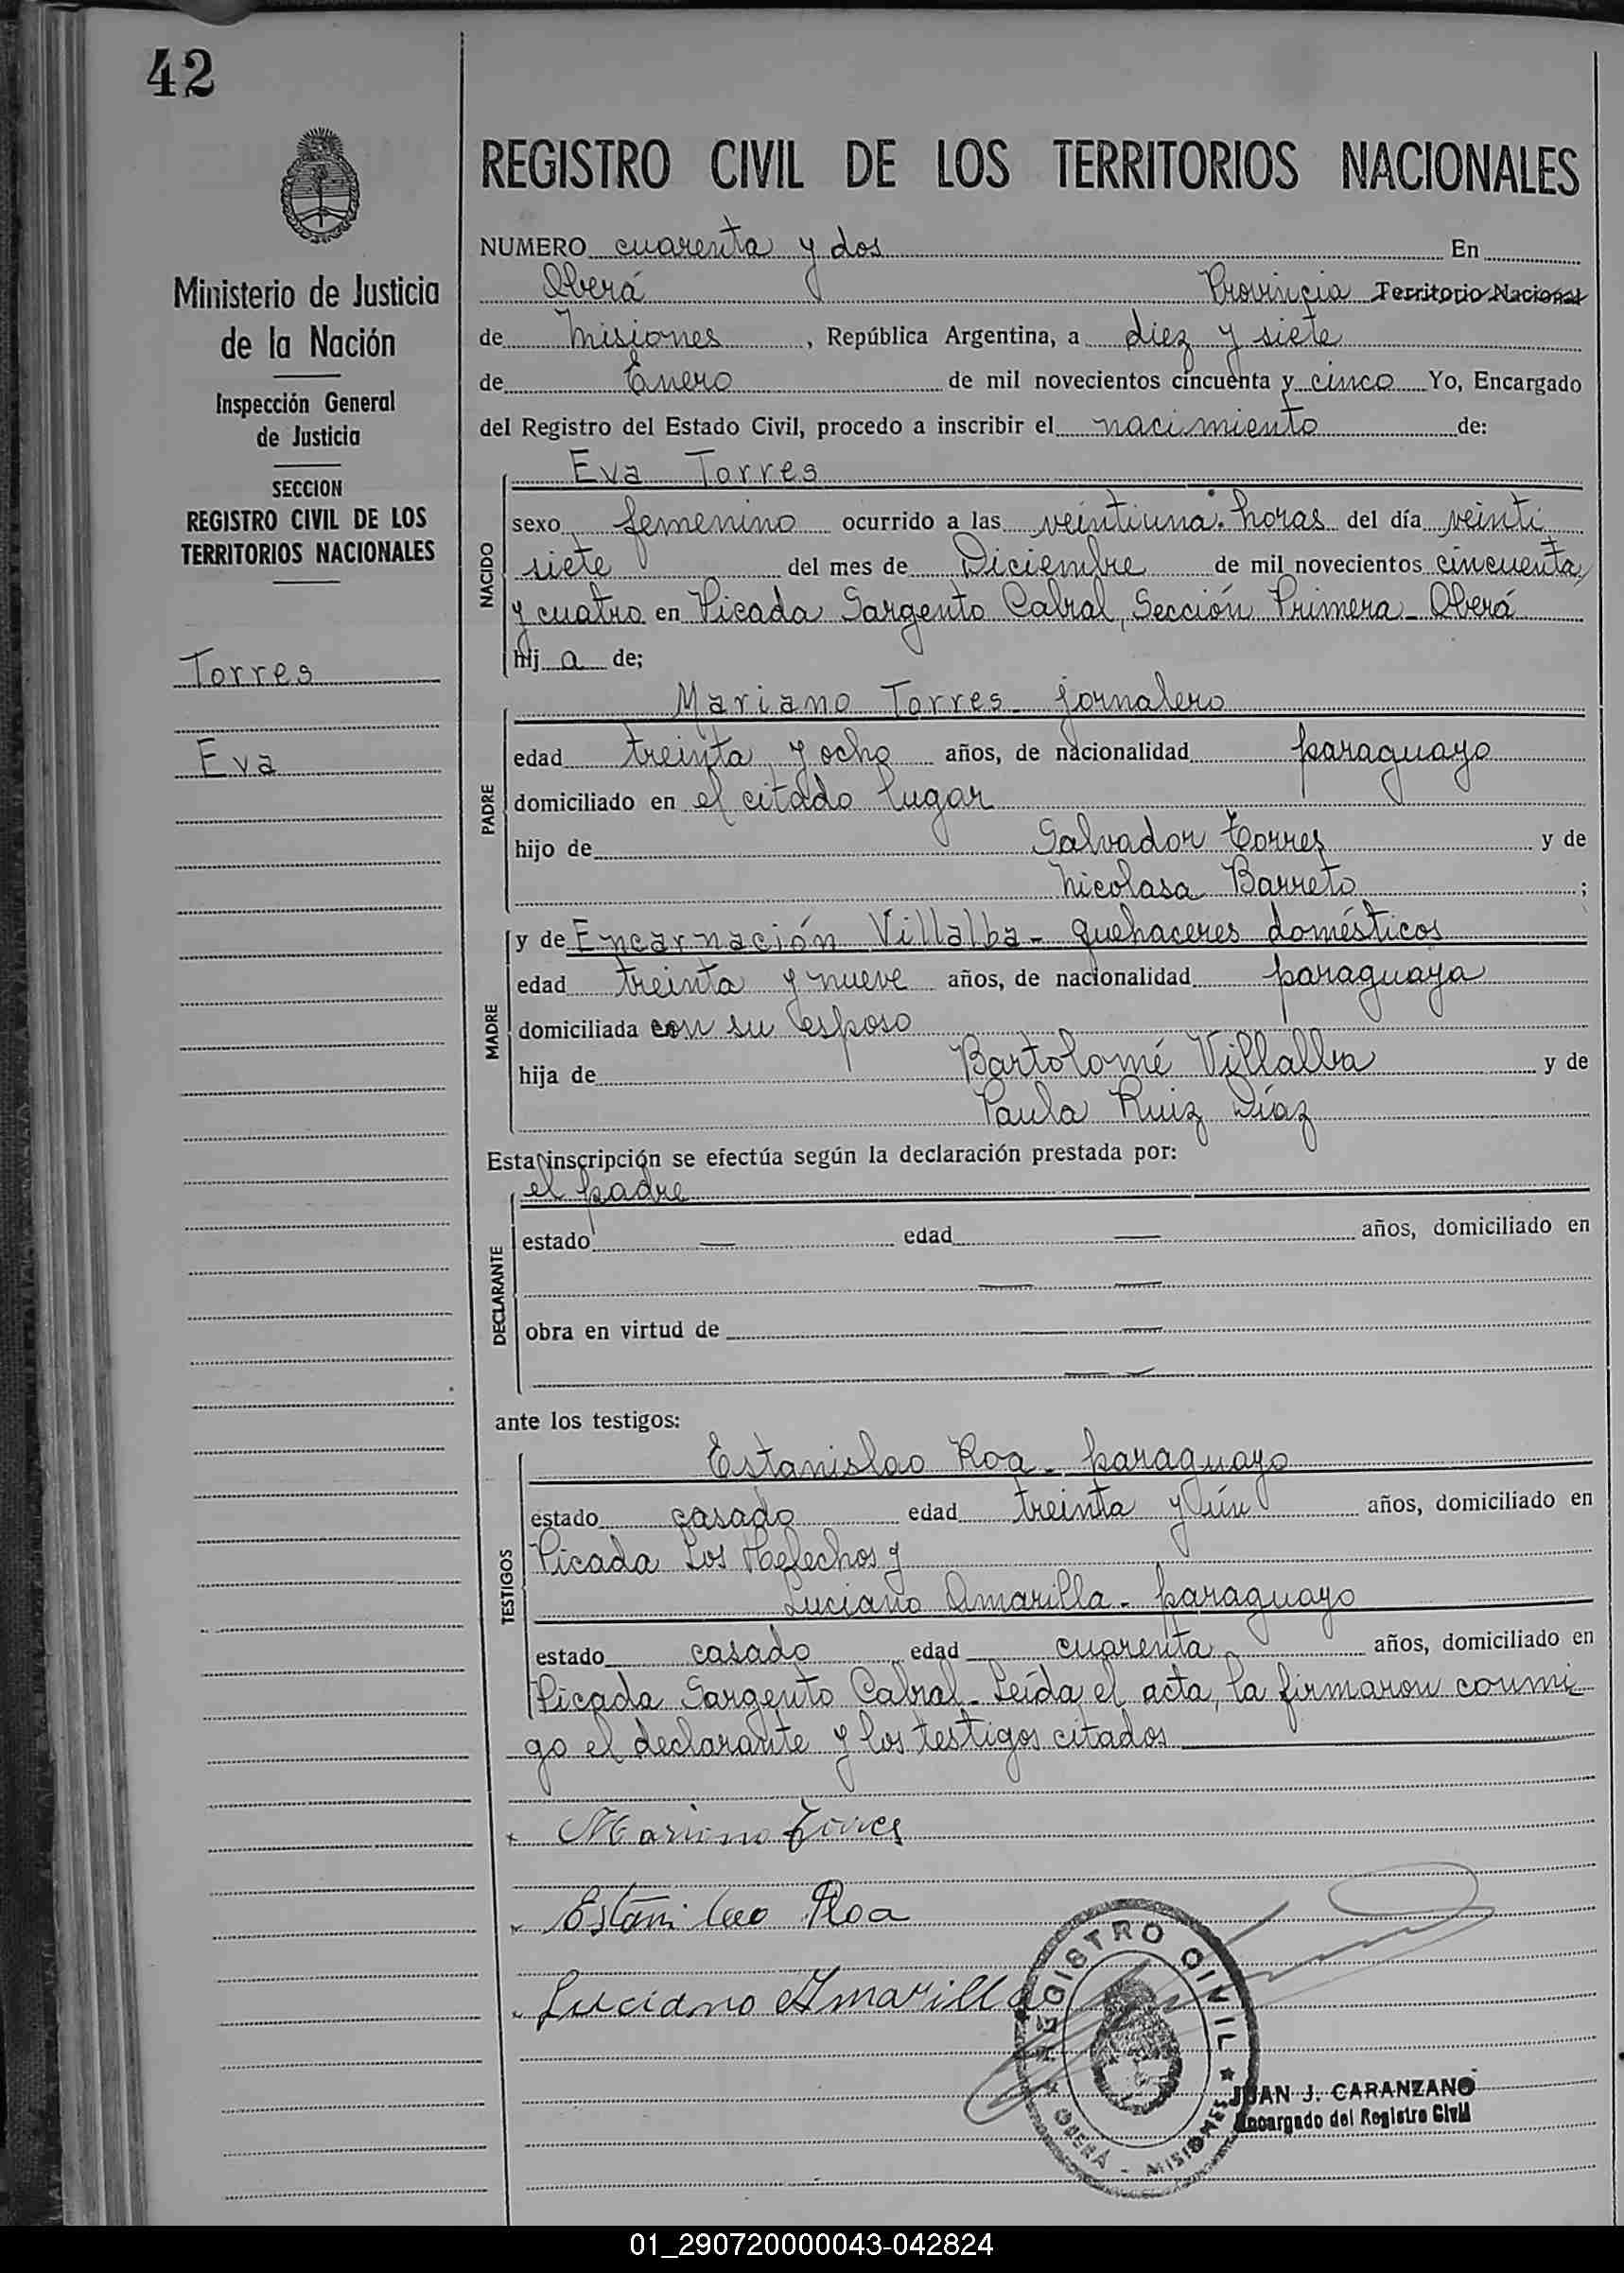 42
REGISTRO CIVIL DE LOS TERRITORIOS NACIONALES
Ministerio de Justicia
de la Nación
Inspección General
de Justicia
SECCION
REGISTRO CIVIL DE LOS
TERRITORIOS NACIONALES
Torres
Eva
NUMERO cuarenta y dos En
Oberá Provincia Territorio Nacional
de Misiones, República Argentina, a diez y siete
de Enero de mil novecientos cincuenta y cinco Yo, Encargado
del Registro del Estado Civil, procedo a inscribir el nacimiento de:
NACIDO
Eva Torres
sexo femenino ocurrido a las veintiuna horas del día veinti
siete del mes de Diciembre de mil novecientos cincuenta
y cuatro en Picada Sargento Cabral, Sección Primera - Oberá
hij a de;
PADRE
Mariano Torres - jornalero
edad treinta y ocho años, de nacionalidad paraguayo
domiciliado en el citado lugar
hijo de Salvador Torres y de
Nicolasa Barreto ;
MADRE
y de Encarnación Villalba - quehaceres domésticos
edad treinta y nueve años, de nacionalidad paraguaya
domiciliada con su esposo
hija de Bartolomé Villalba y de
Paula Ruiz Díaz
Esta inscripción se efectúa según la declaración prestada por:
DECLARANTE
el padre
estado — edad — años, domiciliado en
— —
obra en virtud de — —
— —
ante los testigos:
TESTIGOS
Estanislao Roa - paraguayo
estado casado edad treinta y ún años, domiciliado en
Picada Los Helechos y
Luciano Amarilla - paraguayo
estado casado edad cuarenta años, domiciliado en
Picada Sargento Cabral - Leída el acta, la firmaron conmi
go el declarante y los testigos citados
Mariano Torres
Estanislao Roa
Luciano Amarilla
REGISTRO CIVIL
OBERÁ - MISIONES
JUAN J. CARANZANO
Encargado del Registro Civil
01_290720000043-042824